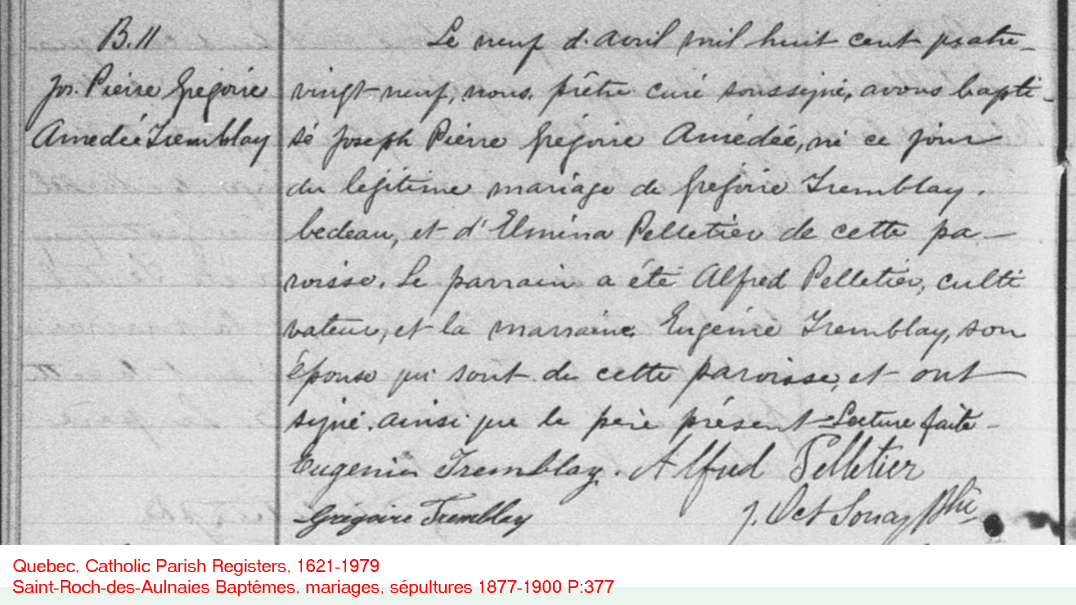 B.11
Jos. Pierre Grégoire
Amedée Tremblay
Le neuf d'avril mil huit cent quatre-
vingt-neuf, nous, prêtre curé soussigné, avons bapti-
sé Joseph Pierre Grégoire Amédée, né ce jour
du légitime mariage de Grégoire Tremblay,
bedeau, et d'Elmina Pelletier de cette pa-
roisse. Le parrain a été Alfred Pelletier, culti
vateur, et la marraine Eugénie Tremblay, son
épouse qui sont de cette paroisse, et ont
signé, ainsi que le père présent - Lecture faite -
Eugenie Tremblay. Alfred Pelletier
Grégoire Tremblay
J. Oct Ptre
Quebec, Catholic Parish Registers, 1621-1979
Saint-Roch-des-Aulnaies Baptêmes, mariages, sépultures 1877-1900 P:377